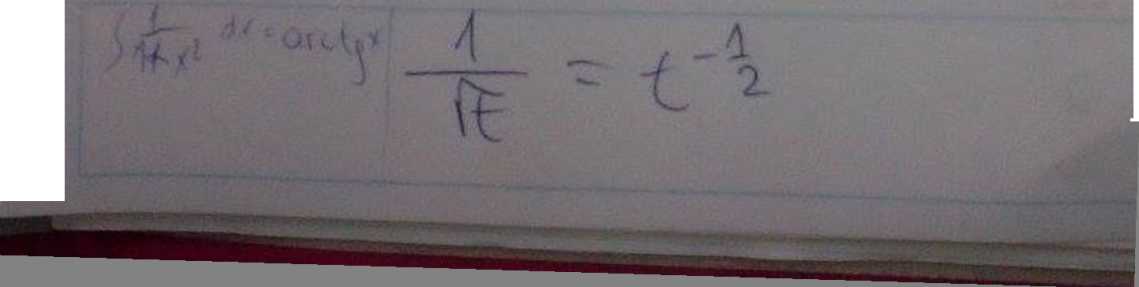 ∫ 1/(1+x²) dx = arctg x
1/√t = t^(-1/2)